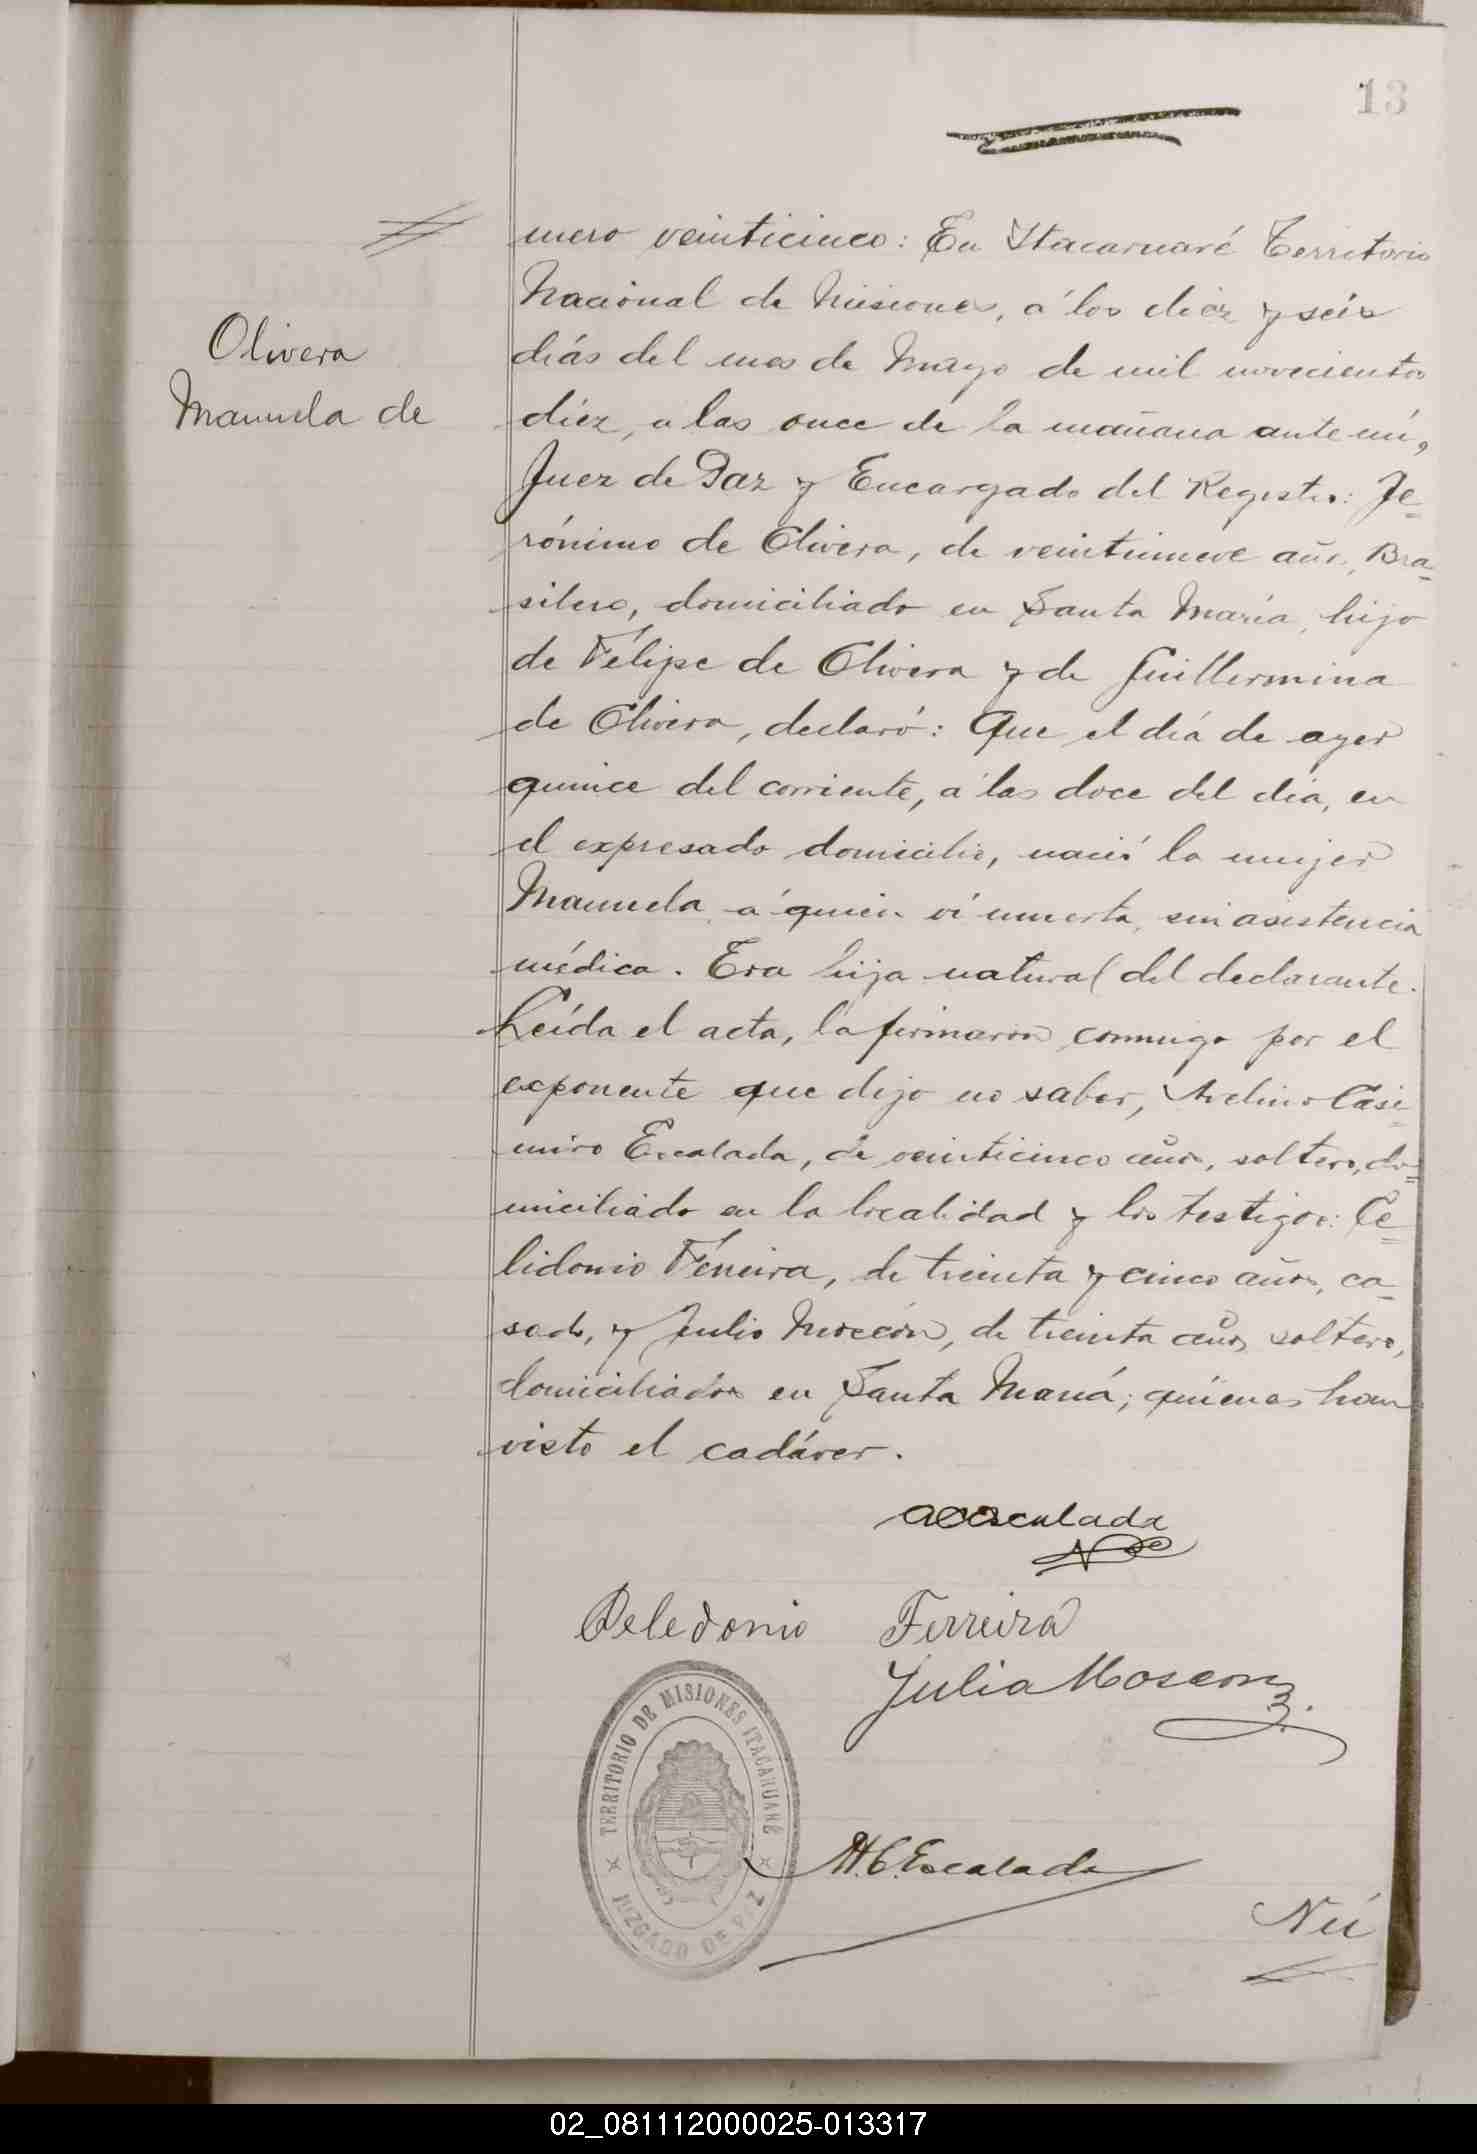 13
mero veinticinco: En Itacaruaré Territorio
Nacional de Misiones, á los diez y seis
diás del mes de Mayo de mil novecientos
Olivera
Manuela de
diéz, a las once de la mañana ante mi,
Juez de Paz y Encargado del Registro: Je-
rónimo de Olivera, de veintinueve años, Bra-
silero, domiciliado en Santa María, hijo
de Félipe de Olivera y de Guillermina
de Olivera, declaró: Que el diá de ayer
quince del corriente, á las doce del dia, en
el expresado domicilio, nació la mujer
Manuela á quien vi muerta, sin asistencia
médica. Era hija natural del declarante.
Leída el acta, la firmaron conmigo por el
exponente que dijo no saber, Avelino Casi-
miro Escalada, de veinticinco años, soltero, do-
miciliado en la localidad y los testigos: Ce-
lidonio Férreira, de treinta y cinco años, ca-
sado, y Julio Moscón, de treinta años, soltero,
domiciliados en Santa Mariá; quiénes han
visto el cadáver.
Celedonio Ferreira
Julio Moscon
TERRITORIO DE MISIONES ITACARUARÉ
JUZGADO DE PAZ
Escalada
Nú
02_081112000025-013317